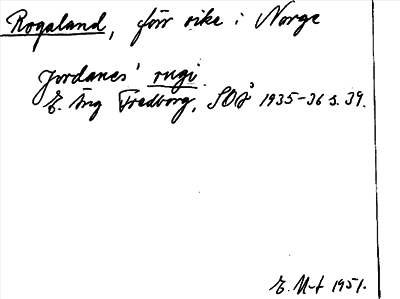 Rogaland, förr rike i Norge
Jordanes' rugi.
E. Ang Fredborg, SOÅ 1935-36 s. 39.
E. M-t 1951.